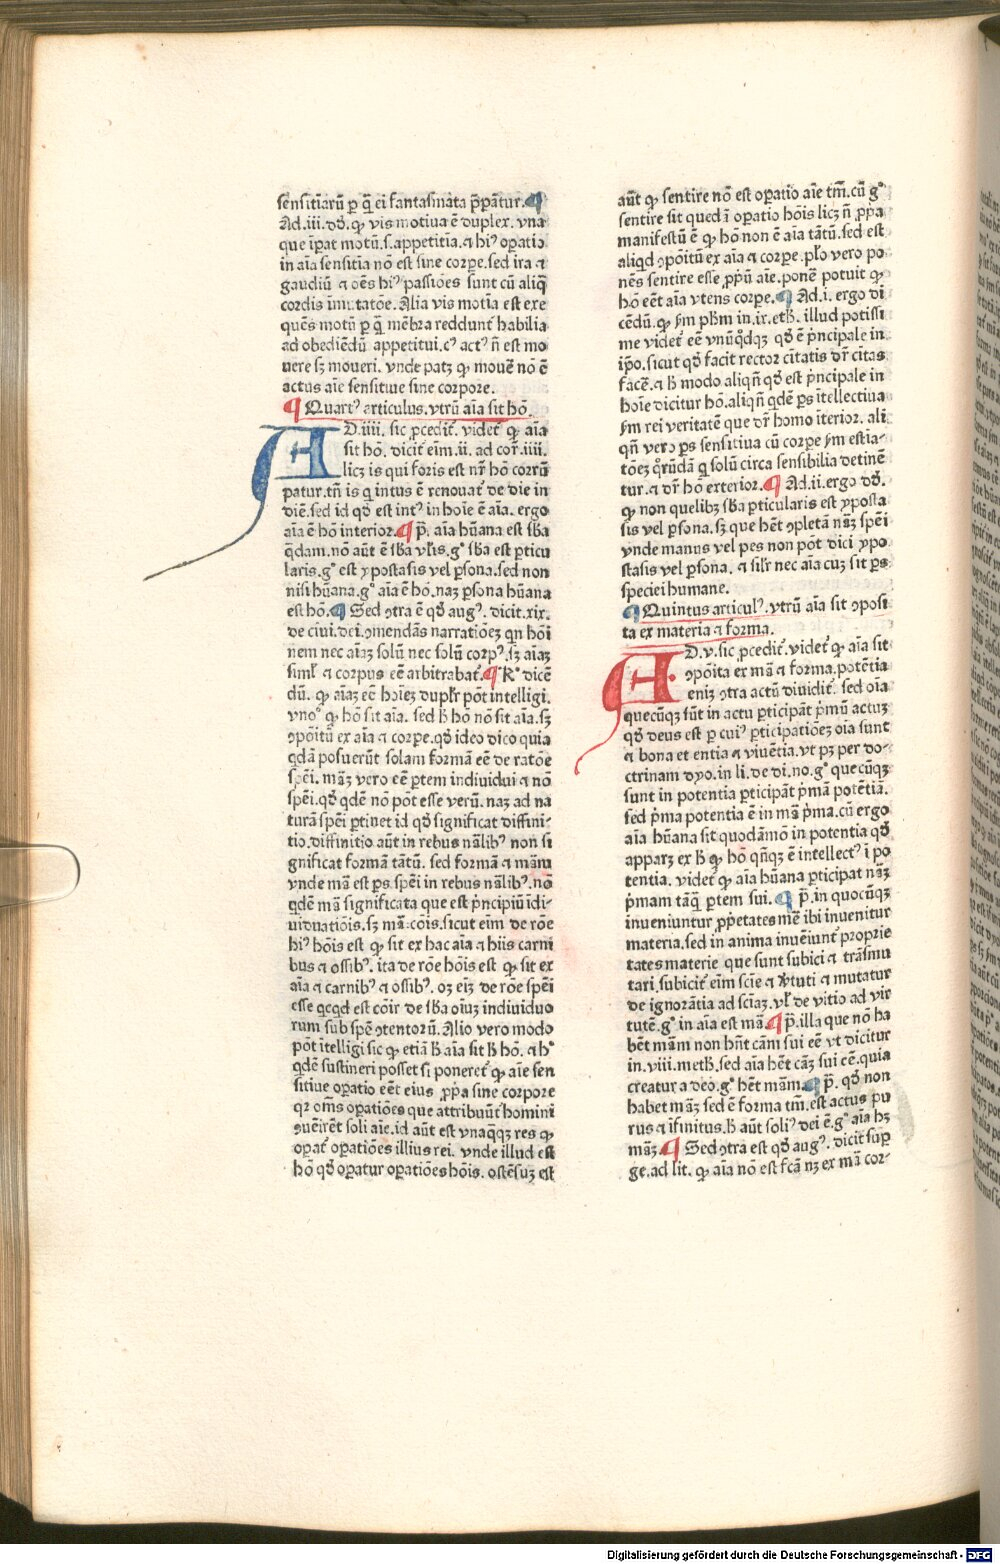 sensitiuarū ꝑ q̄ ei fantasmata p̄pātur. ¶
Ad .iii. dō. ꝙ vis motiua ē duplex. vna
que īpat motū .s. appetitīa. ⁊ hiꝰ oꝑatio
in aīa sensitīa nō est sine corꝑe. sed ira ⁊
gaudiū ⁊ oēs hiꝰ passiōes sunt cū aliq̄
cordis īmutatōe. Alia vis motīa est exe
quēs motū ꝑ q̄ mēbra reddunť habilia
ad obediēdū appetitui. cꝰ actꝰ n̄ est mo
uere sꝫ moueri. vnde patꝫ ꝙ mouē nō ē
actus aīe sensitiue sine corpore.
¶ Quartꝰ articulus. vtrū aīa sit hō.
AD .iiii. sic ꝓcediť. videť ꝙ aīa
sit hō. diciť eīm .ii. ad cor̄ .iiii.
licꝫ is qui foris est nr̄ hō corrū
patur. tn̄ is q̄ intus ē renouať de die in
diē. sed id qd̄ est intꝰ in hoīe ē aīa. ergo
aīa ē hō interior. ¶ p̄. aīa hūana est sb̄a
q̄dam. nō aūt ē sb̄a vl̄is. gͦ sb̄a est ꝑticu
laris. gͦ est ypostasis vel ꝑsona. sed non
nisi hūana. gͦ aīa ē hō. naꝫ ꝑsona hūana
est hō. ¶ Sed ꝯtra ē qd̄ augꝰ. dicit .xix.
de ciui. dei. ꝯmendās narratiōeꝫ qn̄ hōi
nem nec aīaꝫ solū nec solū corpꝰ. sꝫ aīaꝫ
siml̄ ⁊ corpus eē arbitrabať. ¶ Rͦ dicē
dū. ꝙ aīaꝫ eē hoīeꝫ duplr̄ pōt intelligi.
vnoͦ ꝙ hō sit aīa. sed h̄ hō nō sit aīa. sꝫ
ꝯpōitū ex aīa ⁊ corꝑe. qd̄ ideo dico quia
qdā posuerūt solam formā eē de ratōe
spēi. maꝫ vero eē ꝑtem indiuidui ⁊ nō
spēi. qd̄ qdē nō pōt esse verū. naꝫ ad na
turā spēi ꝑtinet id qd̄ significat diffini-
tio. diffinitio aūt in rebus nālibꝰ non si
gnificat formā tātū. sed formā ⁊ mām
vnde mā est ps̄ spēi in rebus nālibꝰ. nō
qdē mā significata que est p̄ncipiū īdi-
uiduatiōis. sꝫ mā cōis. sicut eīm de rōe
hiꝰ hōis est ꝙ sit ex hac aīa ⁊ hiis carni
bus ⁊ ossibꝰ. ita de rōe hōis est ꝙ sit ex
aīa ⁊ carnibꝰ ⁊ ossibꝰ. oꝫ eīꝫ de rōe spēi
esse qcqd est cōir de sb̄a oīuꝫ indiuiduo
rum sub spē ꝯtentorū. Alio vero modo
pōt ītelligi sic ꝙ etiā h̄ aīa sit h̄ hō. ⁊ hͦ
qdē sustineri posset si poneretꝰ ꝙ aīe sen
sitiue oꝑatio eēt eius ꝓpͥa sine corpore
qꝛ om̄s oꝑatiōes que attribuūť homini
ꝯuēirēt soli aīe. id aūt est vnaq̄qꝫ res ꝙ
oꝑať oꝑatiōes illius rei. vnde illud est
hō qd̄ oꝑatur oꝑatiōes hōis. ostēsuꝫ est
aūt ꝙ sentire nō est oꝑatio aīe tm̄. cū gͦ
sentire sit quedā oꝑatio hōis licꝫ n̄ ꝓpͥa
manifestū ē ꝙ hō non ē aīa tātū. sed est
aliqd ꝯpōitū ex aīa ⁊ corꝑe. plͣo vero po
nēs sentire esse ꝓpͥū aīe. ponē potuit ꝙ
hō eēt aīa vtens corꝑe. ¶ Ad .i. ergo di
cēdū. ꝙ ẜm pħm in .ix. etħ. illud potissi
me videť eē vnūqdqꝫ qd̄ ē p̄ncipale in
ip̄o. sicut qd̄ facit rector ciītatis dr̄ ciītas
facē. ⁊ h̄ modo aliqn̄ qd̄ est p̄ncipale in
hoīe dicitur hō. aliqn̄ qdē ps̄ ītellectiua
ẜm rei veritatē que dr̄ homo īterior. ali
qn̄ vero ps̄ sensitiua cū corꝑe ẜm estīa-
tōeꝫ qͦrūdā q̄ solū circa sensibilia detinē
tur. ⁊ dr̄ hō exterior. ¶ Ad .ii. ergo dō.
ꝙ non quelibꝫ sb̄a ꝑticularis est yposta
sis vel ꝑsona. sꝫ que hēt ꝯpletā nāꝫ spēi
vnde manus vel pes non pōt dici ypo
stasis vel ꝑsona. ⁊ silr̄ nec aīa cuꝫ sit ps̄
speciei humane.
¶ Quintus articulꝰ. vtrū aīa sit ꝯposi
ta ex materia ⁊ forma.
AD .v. sic ꝓcediť. videť ꝙ aīa sit
ꝯpōita ex mā ⁊ forma. potētia
enīꝫ ꝯtra actū diuidiť. sed oīa
quecūqꝫ sūt in actu ꝑticipāt p̄mū actuꝫ
qd̄ deus est ꝑ cuiꝰ ꝑticipatiōeꝫ oīa sunt
⁊ bona et entia ⁊ viuētia. vt pꝫ per do-
ctrinam dyo. in li. de di. no. gͦ quecūqꝫ
sunt in potentia ꝑticipāt p̄mā potētiā.
sed p̄ma potentia ē in mā p̄ma. cū ergo
aīa hūana sit quodāmō in potentia qd̄
apparꝫ ex h̄ ꝙ hō qn̄qꝫ ē intellectꝰ ī po
tentia. videť ꝙ aīa hūana ꝑticipat māꝫ
p̄mam tāq̄ ꝑtem sui. ¶ p̄. in quocūqꝫ
inueniuntur ꝓpͥetates mēe ibi inuenitur
materia. sed in anima inuēiunť proprie
tates materie que sunt subici ⁊ trāsmu
tari. subiciť eīm scīe ⁊ v̄tuti ⁊ mutatur
de ignorātia ad sciaꝫ. vl̄ de vitio ad vir
tutē. gͦ in aīa est mā ¶ p̄. illa que nō ha
bēt mām non hn̄t cām sui eē vt dicitur
in .viii. metħ. sed aīa hēt cāꝫ sui eē. quia
creatur a deo. gͦ hēt mām. ¶ p̄. qd̄ non
habet māꝫ sed ē forma tm̄. est actus pu
rus ⁊ īfinitus. h̄ aūt soliꝰ dei ē. gͦ aīa hꝫ
māꝫ. ¶ Sed ꝯtra est qd̄ augꝰ. dicit suꝑ
ge. ad lit. ꝙ aīa nō est fcā nꝫ ex mā cor-
Digitalisierung gefördert durch die Deutsche Forschungsgemeinschaft - DFG